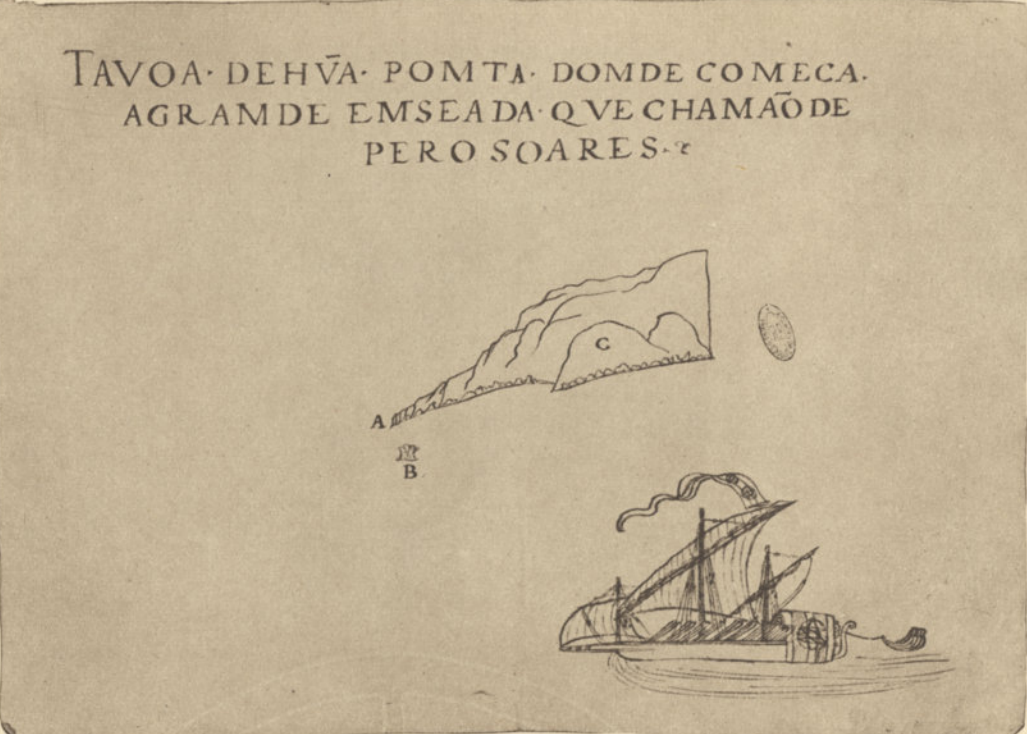 TAVOA· DEHṼA· POMTA· DOMDE COMECA·
AGRAMDE EMSEADA·QVE CHAMAÕ DE
PERO SOARES·
C
A
B